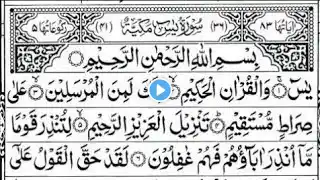 اٰیاتها ۸۳ (۳۶) سُوْرَةُ يٰسٓ مَكِّيَّةٌ (۴۱) رکوعاتها ۵
بِسْمِ اللّٰهِ الرَّحْمٰنِ الرَّحِيْمِ
يٰسٓ ۚ وَالْقُرْاٰنِ الْحَكِيْمِ ۙ لَمِنَ الْمُرْسَلِيْنَ ۙ عَلٰى
صِرَاطٍ مُّسْتَقِيْمٍ ؕ تَنْزِيْلَ الْعَزِيْزِ الرَّحِيْمِ ۙ لِتُنْذِرَ قَوْمًا
مَّاۤ اُنْذِرَ اٰبَآؤُهُمْ فَهُمْ غٰفِلُوْنَ ۶ لَقَدْ حَقَّ الْقَوْلُ عَلٰۤى